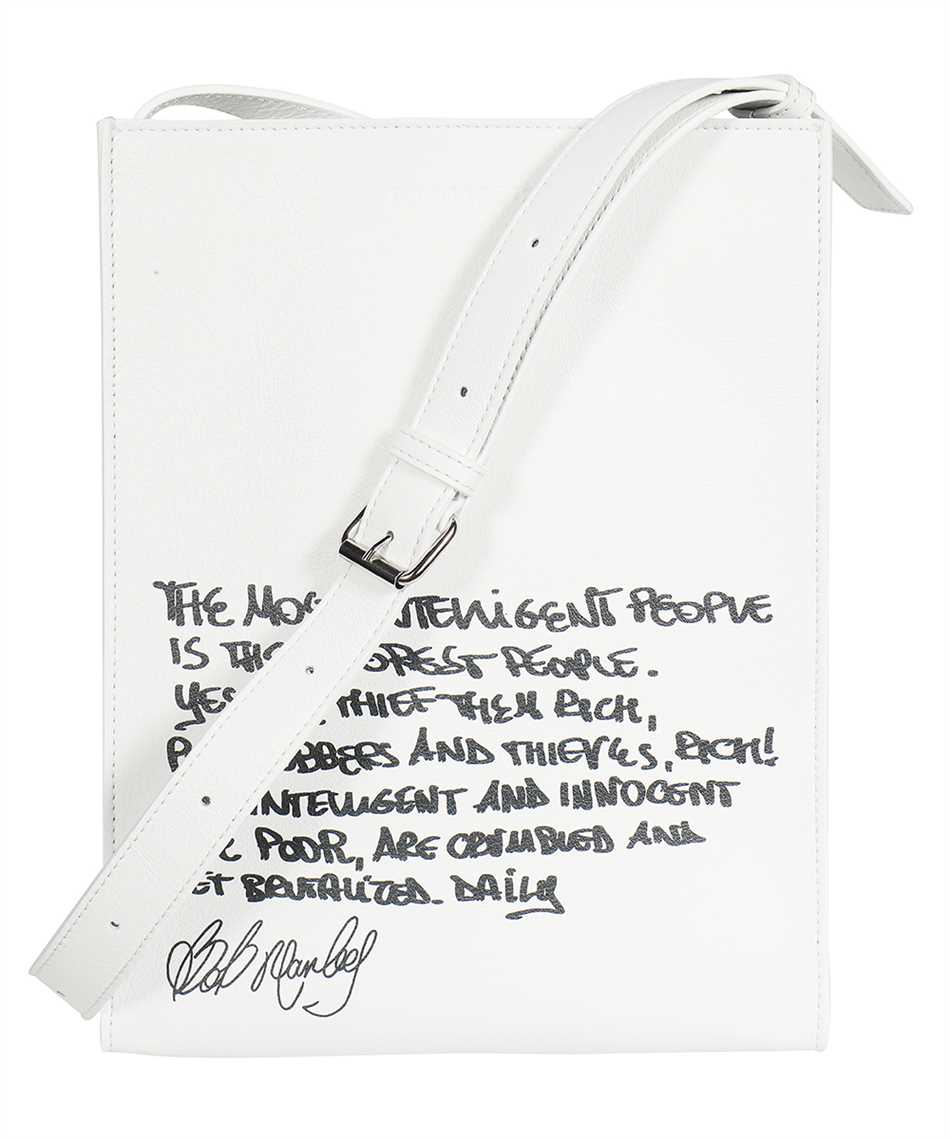 THE MOS INTELLIGENT PEOPLE
IS THE OREST PEOPLE.
YES THIEF THEM RICH,
BBERS AND THIEVES, RICH!
INTELLIGENT AND INNOCENT
POOR, ARE CRUMBLED AND
ET BRUTALIZED. DAILY
Bob Marley